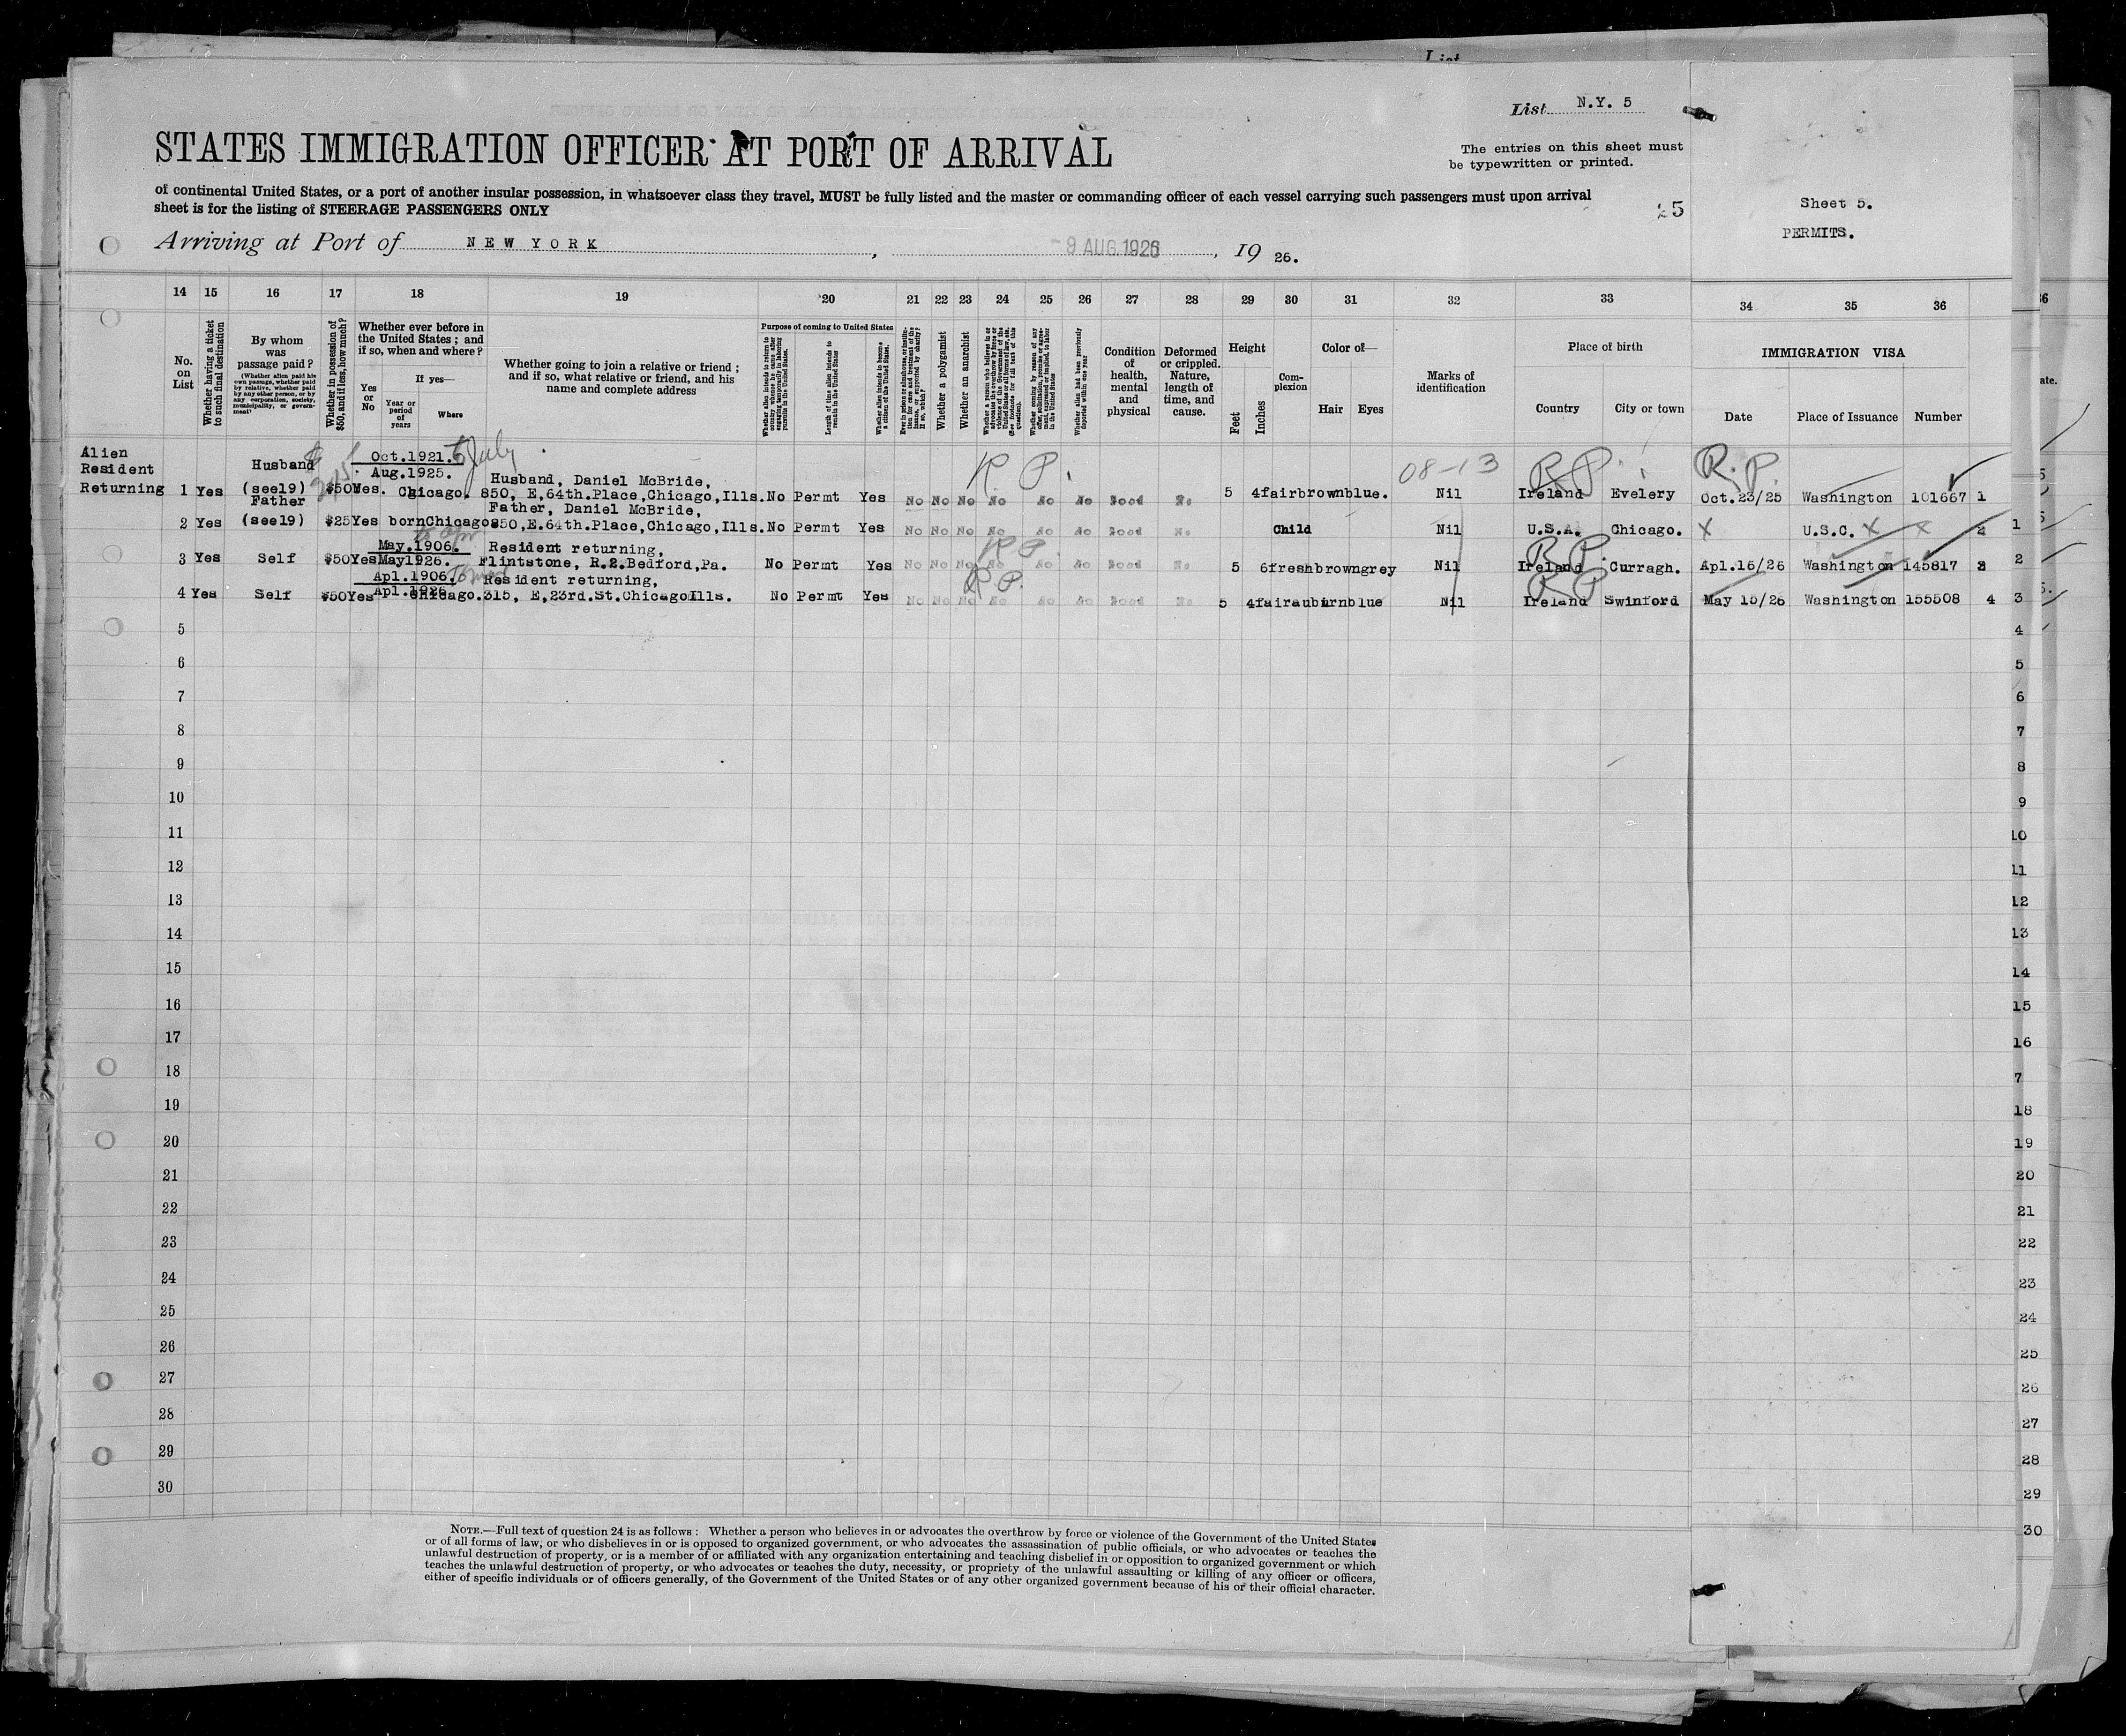 List N.Y. 5
STATES IMMIGRATION OFFICER AT PORT OF ARRIVAL
The entries on this sheet must
be typewritten or printed.
of continental United States, or a port of another insular possession, in whatsoever class they travel, MUST be fully listed and the master or commanding officer of each vessel carrying such passengers must upon arrival
sheet is for the listing of STEERAGE PASSENGERS ONLY
25
Sheet 5.
PERMITS.
Arriving at Port of NEW YORK, 9 AUG. 1926, 19 26.
14 15 16 17 18 19 20 21 22 23 24 25 26 27 28 29 30 31 32 33 34 35 36
No. on List
Whether having a ticket to such final destination
By whom was passage paid?
(Whether alien paid his own passage, whether paid by relative, whether paid by any other person, or by any corporation, society, municipality, or government)
Whether in possession of $50, and if less, how much?
Whether ever before in the United States; and if so, when and where?
Yes or No
If yes—
Year or period of years
Where
Whether going to join a relative or friend; and if so, what relative or friend, and his name and complete address
Purpose of coming to United States
Whether alien intends to return to country whence he came after engaging temporarily in laboring pursuits in the United States.
Length of time alien intends to remain in the United States
Whether alien intends to become a citizen of the United States.
Whether a polygamist
Whether an anarchist
Whether alien had been previously deported within one year
Condition of health, mental and physical
Deformed or crippled. Nature, length of time, and cause.
Height
Feet
Inches
Complexion
Color of—
Hair Eyes
Marks of identification
Place of birth
Country
City or town
IMMIGRATION VISA
Date
Place of Issuance
Number
Alien
Resident
Returning
Husband Oct.1921. July
Aug.1925. Husband, Daniel McBride,
1 Yes (see19) $50 Yes. Chicago. 850, E,64th.Place,Chicago,Ills. No Permt Yes No No No No No No Good No 5 4 fair brown blue. Nil Ireland Evelery Oct.23/25 Washington 101667 1
R P. 08-13 R P R.P.
Father Father, Daniel McBride,
2 Yes (see19) $25 Yes born Chicago 850,E.64th.Place,Chicago,Ills. No Permt Yes No No No No No No Good No Child Nil U.S.A. Chicago. X U.S.C. X X 2
May.1906. Resident returning, R P R P
3 Yes Self $50 Yes May1926. Flintstone, R.2.Bedford,Pa. No Permt Yes No No No No No No Good No 5 6 fresh brown grey Nil Ireland Curragh. Apl.16/26 Washington 145817 3
Apl.1906. Resident returning, R P. R P
4 Yes Self $50 Yes Apl.1926 Chicago. 315, E,23rd.St.Chicago Ills. No Permt Yes No No No No No No Good No 5 4 fair auburn blue Nil Ireland Swinford May 15/26 Washington 155508 4
5
6
7
8
9
10
11
12
13
14
15
16
17
18
19
20
21
22
23
24
25
26
27
28
29
30
NOTE.—Full text of question 24 is as follows: Whether a person who believes in or advocates the overthrow by force or violence of the Government of the United States
or of all forms of law, or who disbelieves in or is opposed to organized government, or who advocates the assassination of public officials, or who advocates or teaches the
unlawful destruction of property, or is a member of or affiliated with any organization entertaining and teaching disbelief in or opposition to organized government or which
teaches the unlawful destruction of property, or who advocates or teaches the duty, necessity, or propriety of the unlawful assaulting or killing of any officer or officers,
either of specific individuals or of officers generally, of the Government of the United States or of any other organized government because of his or their official character.